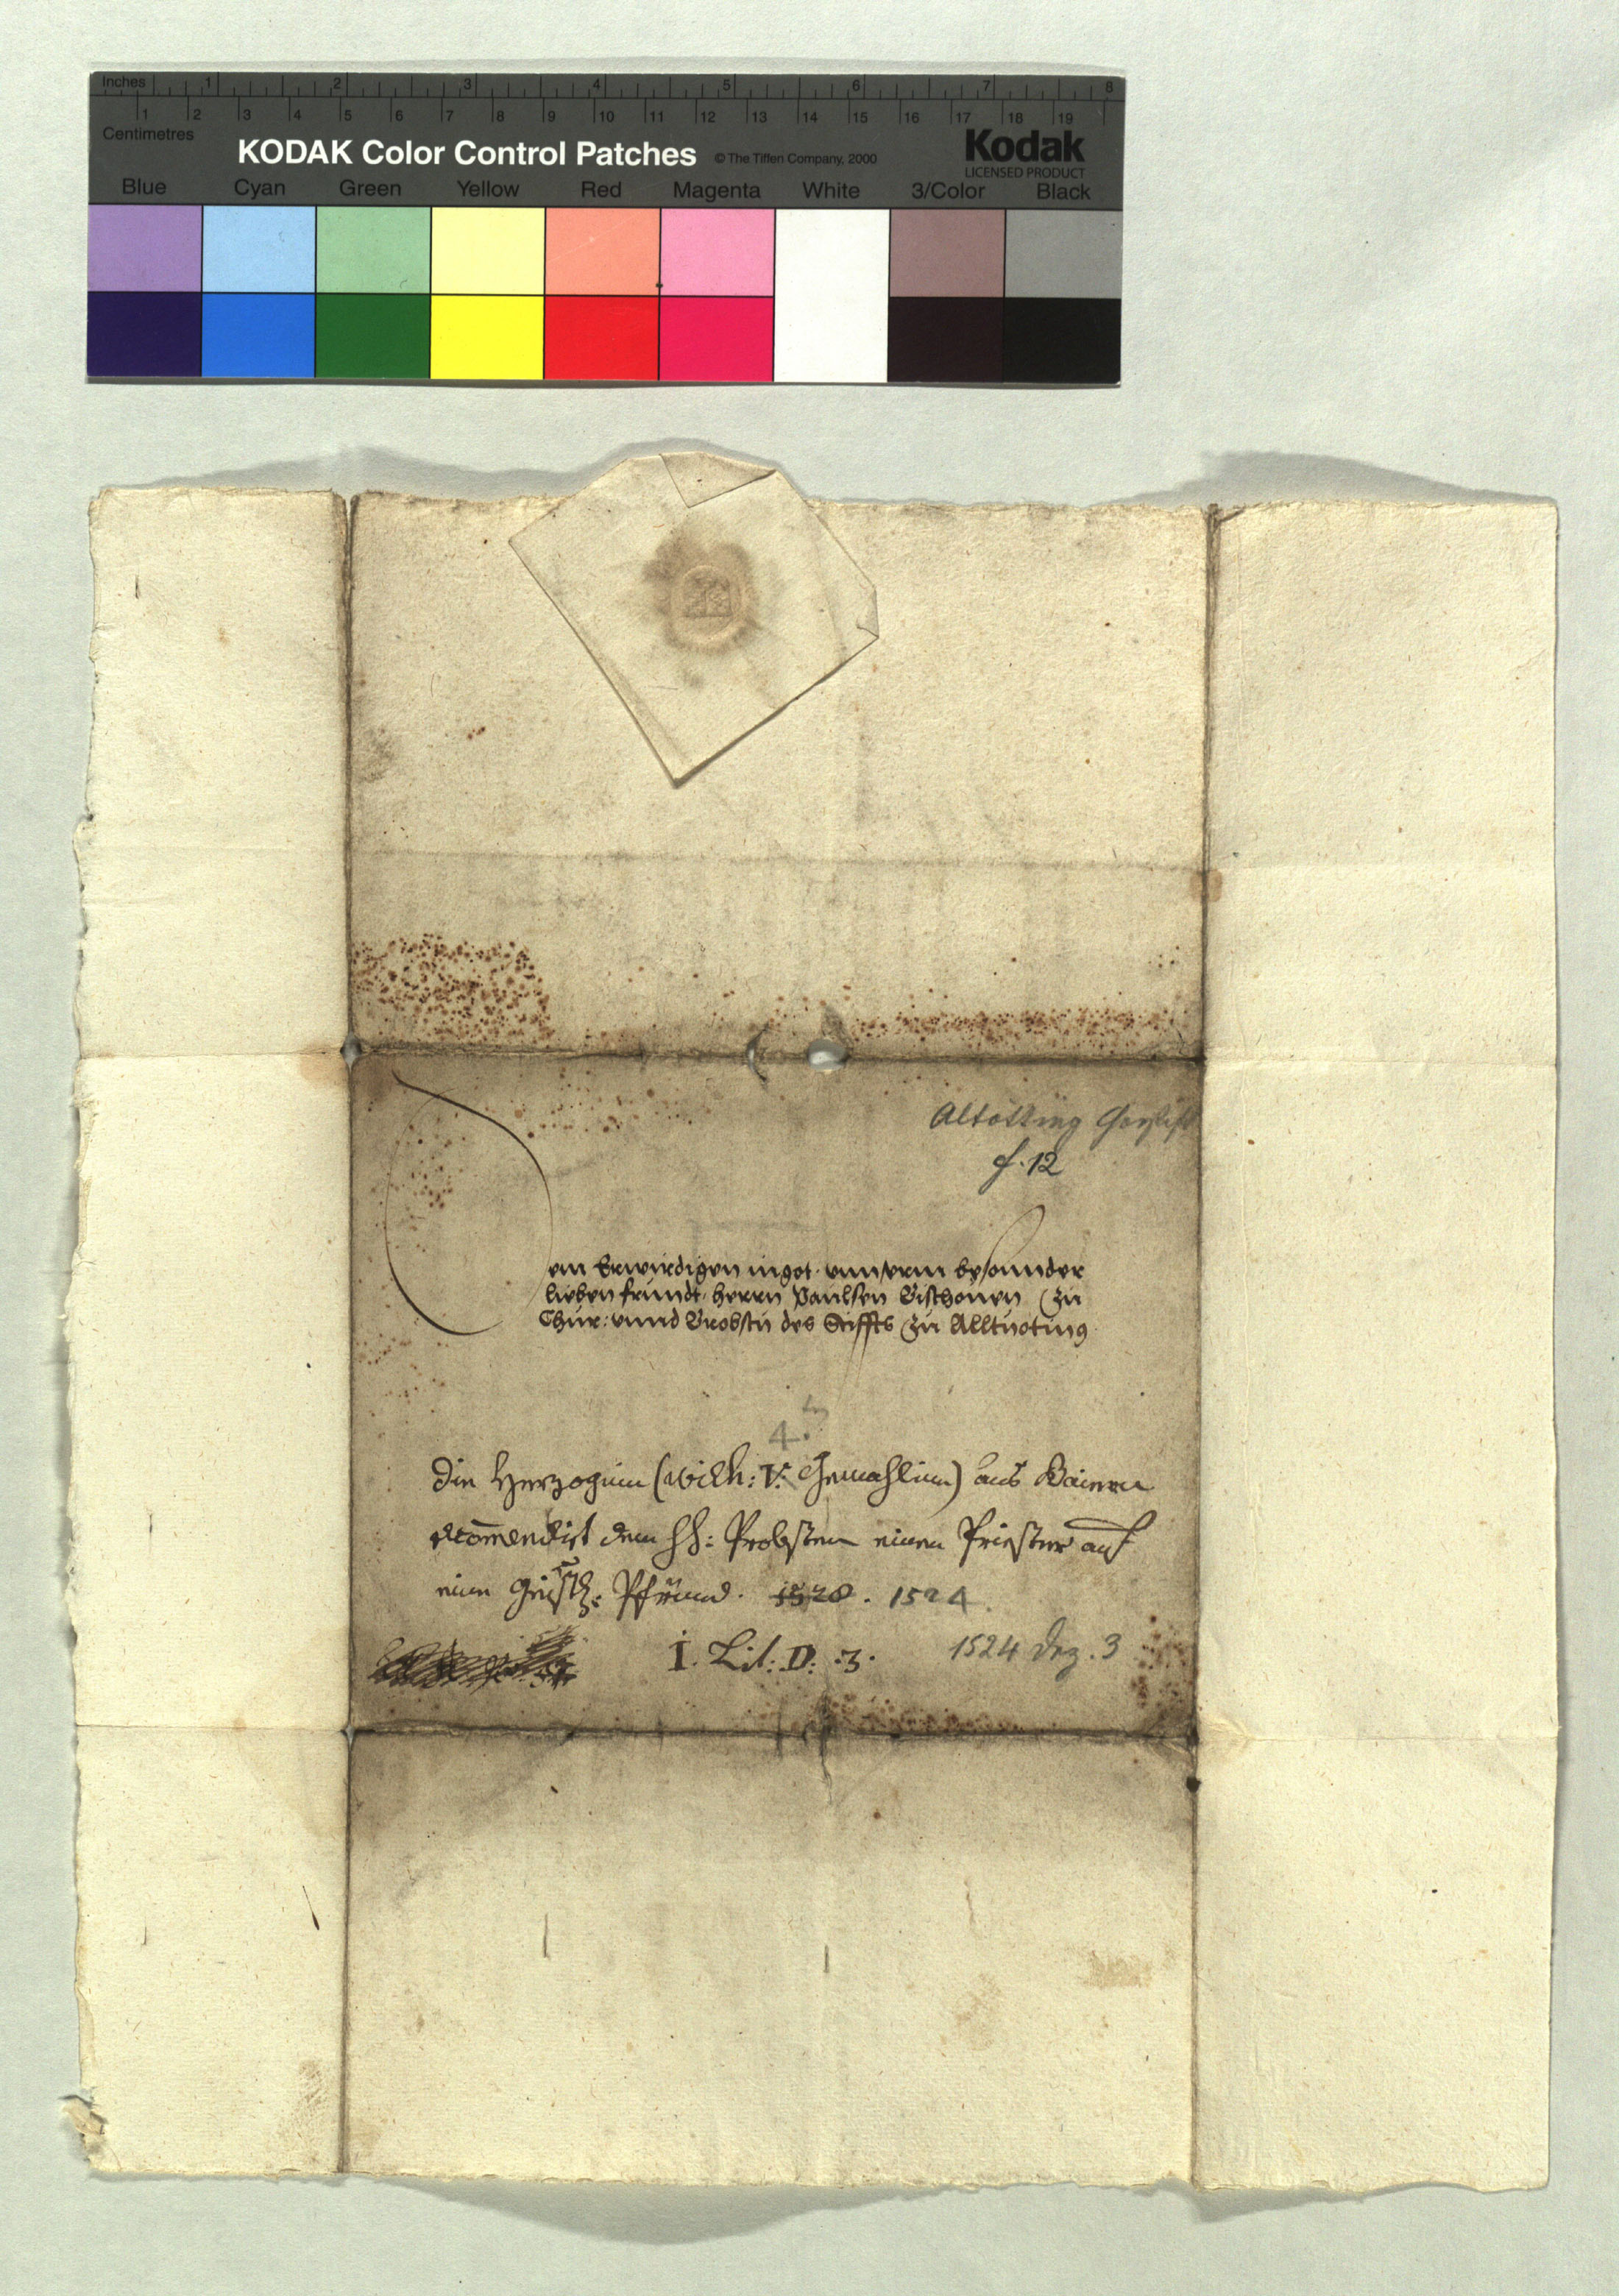 Inches 1 2 3 4 5 6 7 8
1 2 3 4 5 6 7 8 9 10 11 12 13 14 15 16 17 18 19
Centimetres
KODAK Color Control Patches © The Tiffen Company, 2000 Kodak
LICENSED PRODUCT
Blue Cyan Green Yellow Red Magenta White 3/Color Black
Altötting
f. 12
Dem Erwirdigen in got unnserm besonnder
lieben frundt herrn Paulsen Bischouen zu
Chur: unnd Brobste des Stiffts zu Alltnoting
4.
Die Herzoginn (Wilh: V. Gemahlinn) aus Baiern
recom̄endirt dem HH: Probsten einen Priester auf
eine Geistl: Pfründ. 1520. 1524
I. Lit: D: .3. 1524 Dez. 3